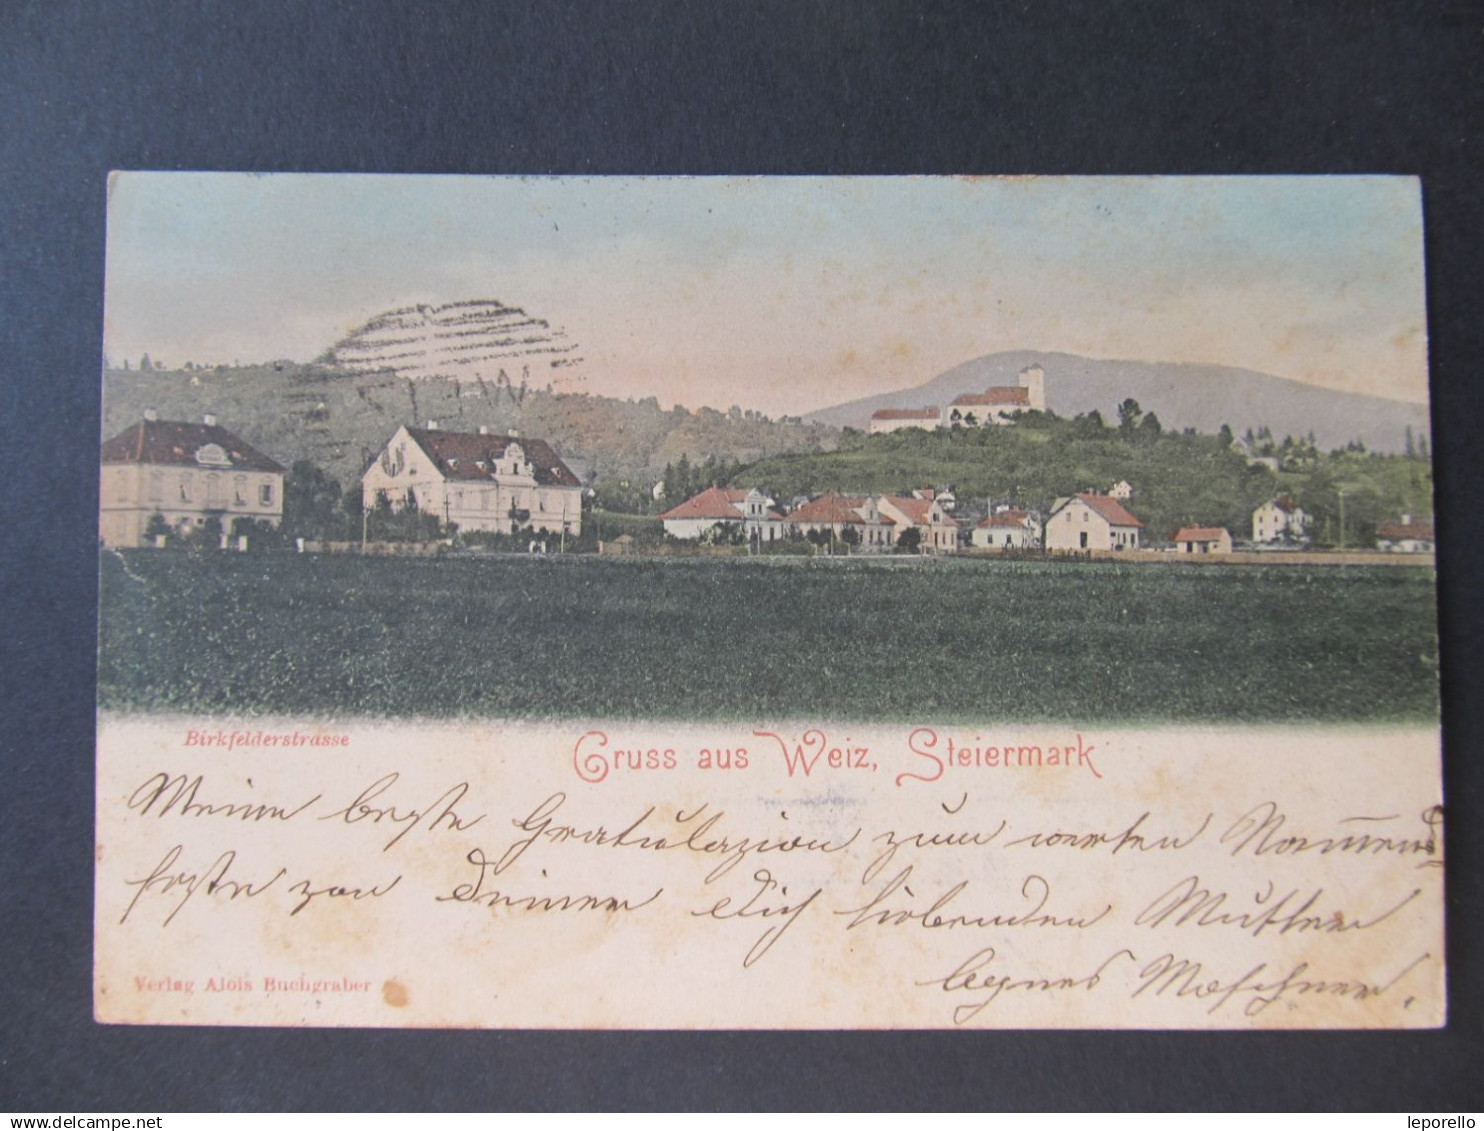 Birkfelderstrasse
Gruss aus Weiz, Steiermark
Meine beste Gratulazion zum werten Namens
feste von Deiner Dich liebenden Mutter
Agnes Moschner.
Verlag Alois Buchgraber
www.delcampe.net
leporello